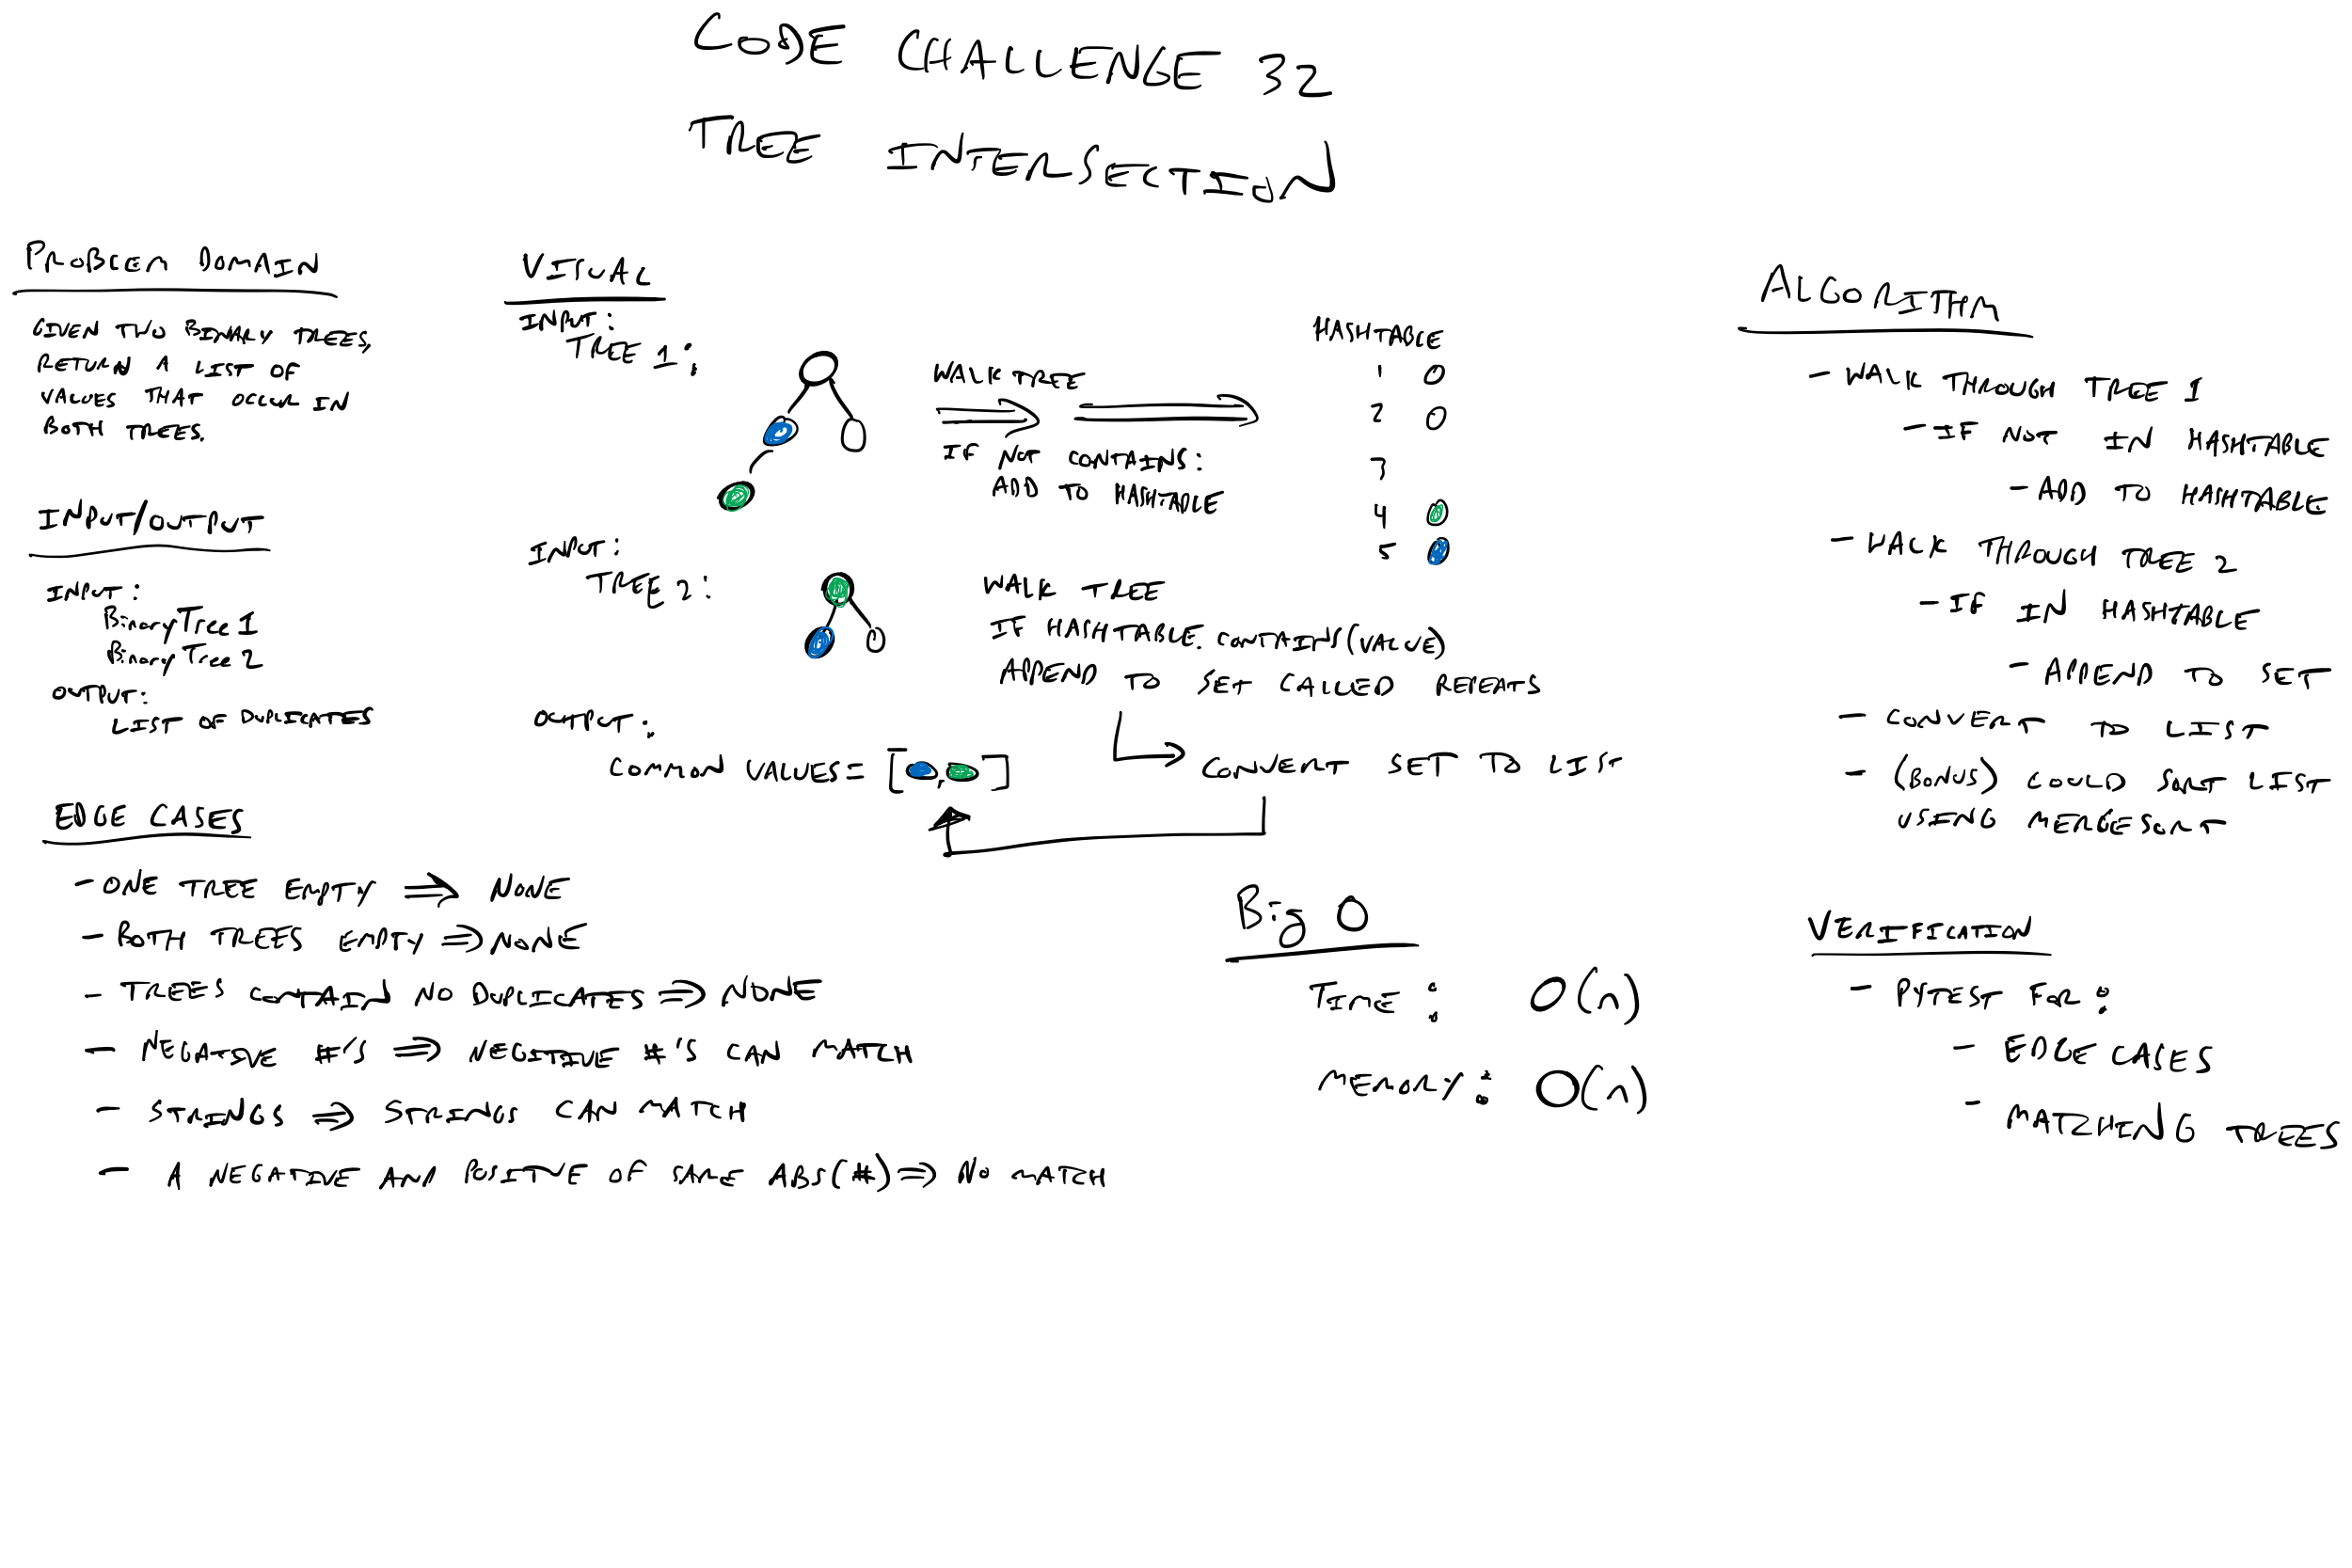 CODE CHALLENGE 32
TREE INTERSECTION
PROBLEM DOMAIN
GIVEN TWO BINARY TREES,
RETURN A LIST OF
VALUES THAT OCCUR IN
BOTH TREES.
INPUT/OUTPUT
INPUT:
BinaryTree 1
BinaryTree 2
OUTPUT:
LIST OF DUPLICATES
EDGE CASES
- ONE TREE EMPTY ⇒ NONE
- BOTH TREES EMPTY ⇒ NONE
- TREES CONTAIN NO DUPLICATES ⇒ NONE
- NEGATIVE #'S ⇒ NEGITIVE #'S CAN MATCH
- STRINGS ⇒ STRINGS CAN MATCH
- A NEGATIVE AND POSITVE OF SAME ABS(#) ⇒ NO MATCH
VISUAL
INPUT:
TREE 1:
WALK TREE
IF NOT CONTAINS:
ADD TO HASHTABLE
HASHTABLE
1
2
3
4
5
INPUT:
TREE 2:
WALK TREE
IF HASHTABLE.CONTAINS(VALUE)
APPEND TO SET CALLED REPEATS
CONVERT SET TO LIST
OUTPUT:
COMMON VALUES = [ , ]
Big O
TIME: O(n)
MEMORY: O(n)
ALGORITHM
- WALK THROUGH TREE 1
- IF NOT IN HASHTABLE
- ADD TO HASHTABLE
- WALK THROUGH TREE 2
- IF IN HASHTABLE
- APPEND TO SET
- CONVERT TO LIST
- (BONUS) COULD SORT LIST
USING MERGESORT
VERIFICATION
- PYTEST FOR:
- EDGE CASES
- MATCHING TREES